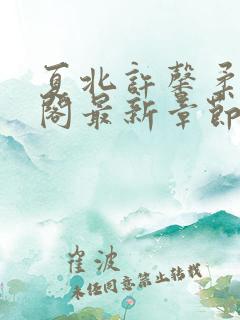 夏北许馨柔
阁最新章节
崔波
未经同意禁止转载